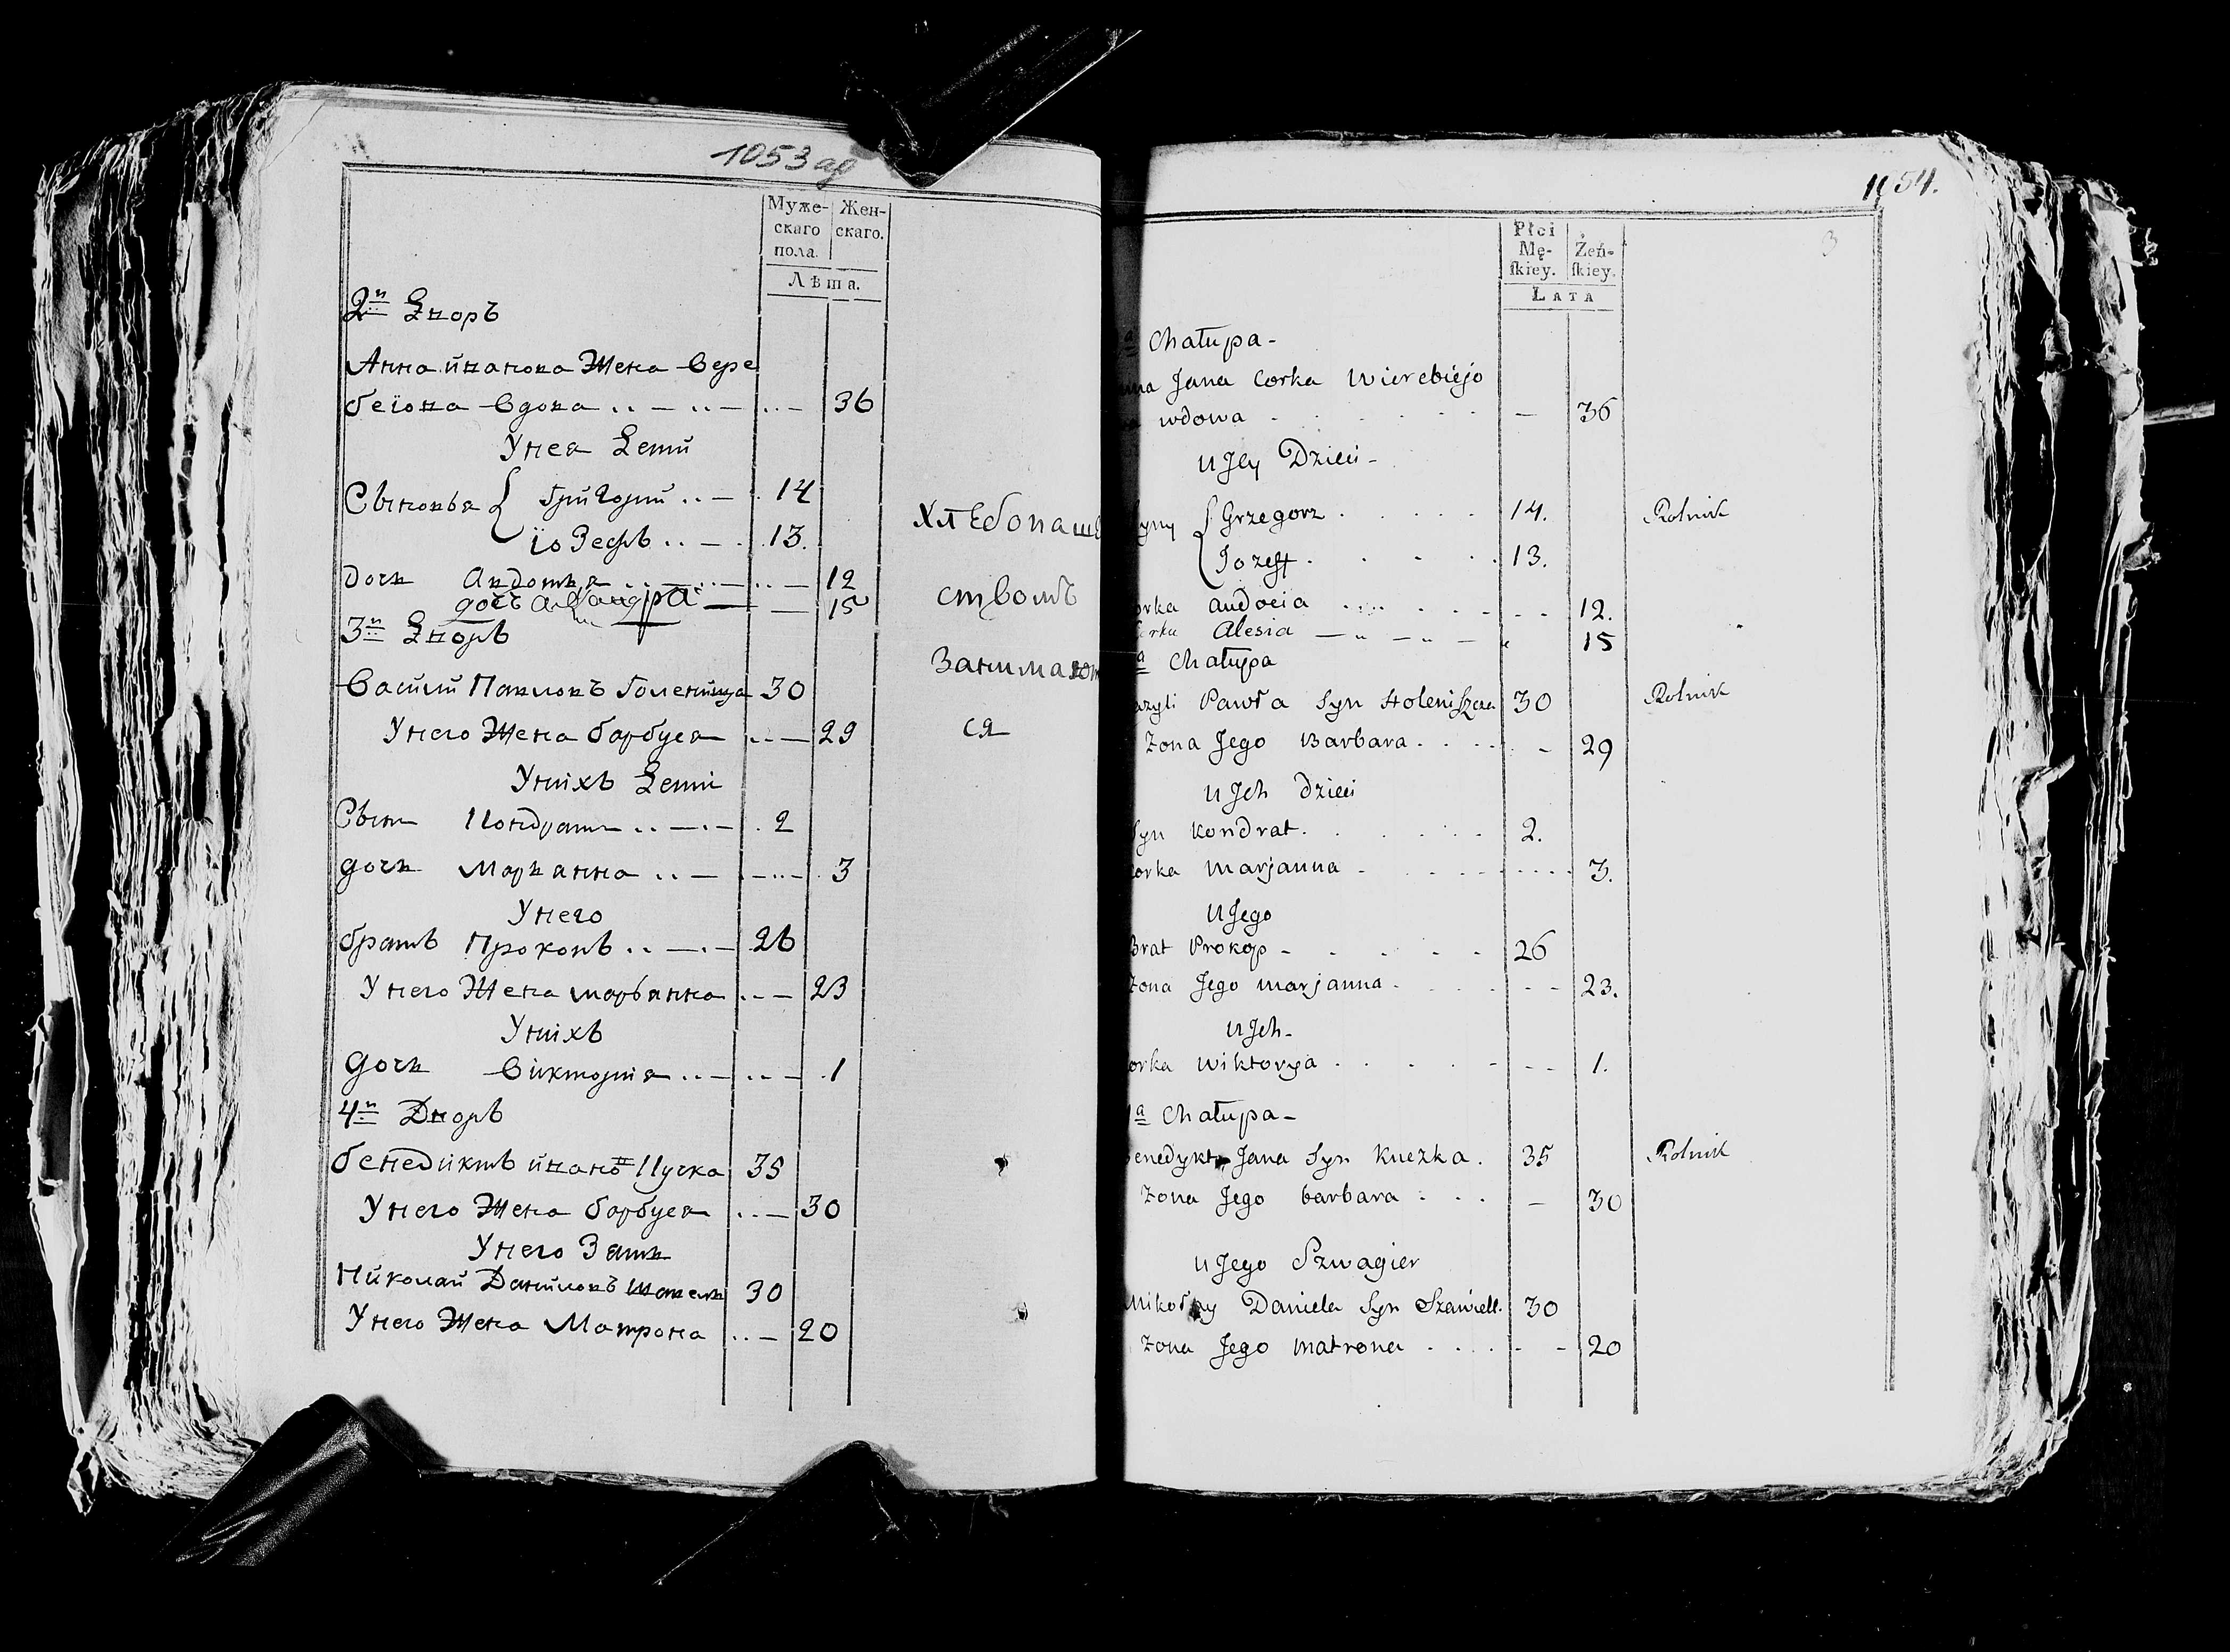 1053 об
Муже- Жен-
скаго скаго.
пола.
Лѣта.
2й Дворъ
Анна иванова Жена Вере
беiова вдова .. — .. — ..— 36
Унея Дети
Сыновья { Григорий .. — . 14
iоЗефъ .. — . 13.
дочь Авдотья .. — .. — .. — 12
дочь — — 15
3й Дворъ
Василий Павловъ Голенища 30
Унего Жена барбуся ..— 29
Унiхъ Дети
Сынъ Кондратъ .. —.— . 2
дочь Марьянна .. — .—..—. 3
Унего
братъ Прокопъ .. —.— 26
Унего Жена марьянна ..— 23
Унiхъ
дочь Викторiя .. — .. — .1
4й Дворъ
бенедиктъ ивановъ Кучка 35
Унего Жена барбуся ..— 30
Унего Зять
Николай Даниловъ Шавель 30
Унего Жена Матрона ..— 20
Хлѣбопаш
ствомъ
Занимают
ся
1054.
3
Płci
Mę- Żeń-
ſkiey. ſkiey.
LATA
a Chałupa-
na Jana Corka Wierebiejo
a wdowa — 36
u Jey Dzieci -
yny { Grzegorz 14. Rolnik
Jozeff 13.
orka Audocia 12.
orka Alesia — „ — „ — „ 15
a Chałupa
azyli Pawła Syn Holeniszcza 30 Rolnik
Zona Jego Barbara - 29
u Jch dzieci
Syn Kondrat 2.
orka Marjanna 3.
u Jego
Brat Prokop - 26
Zona Jego Marjanna 23.
u Jch-
orka Wiktorya 1.
a Chałupa-
enedykt Jana Syn Kuczka. 35 Rolnik
Zona Jego barbara — 30
u Jego Szwagier
Mikołay Daniela Syn Szawell. 30
Zona Jego Matrona - 20